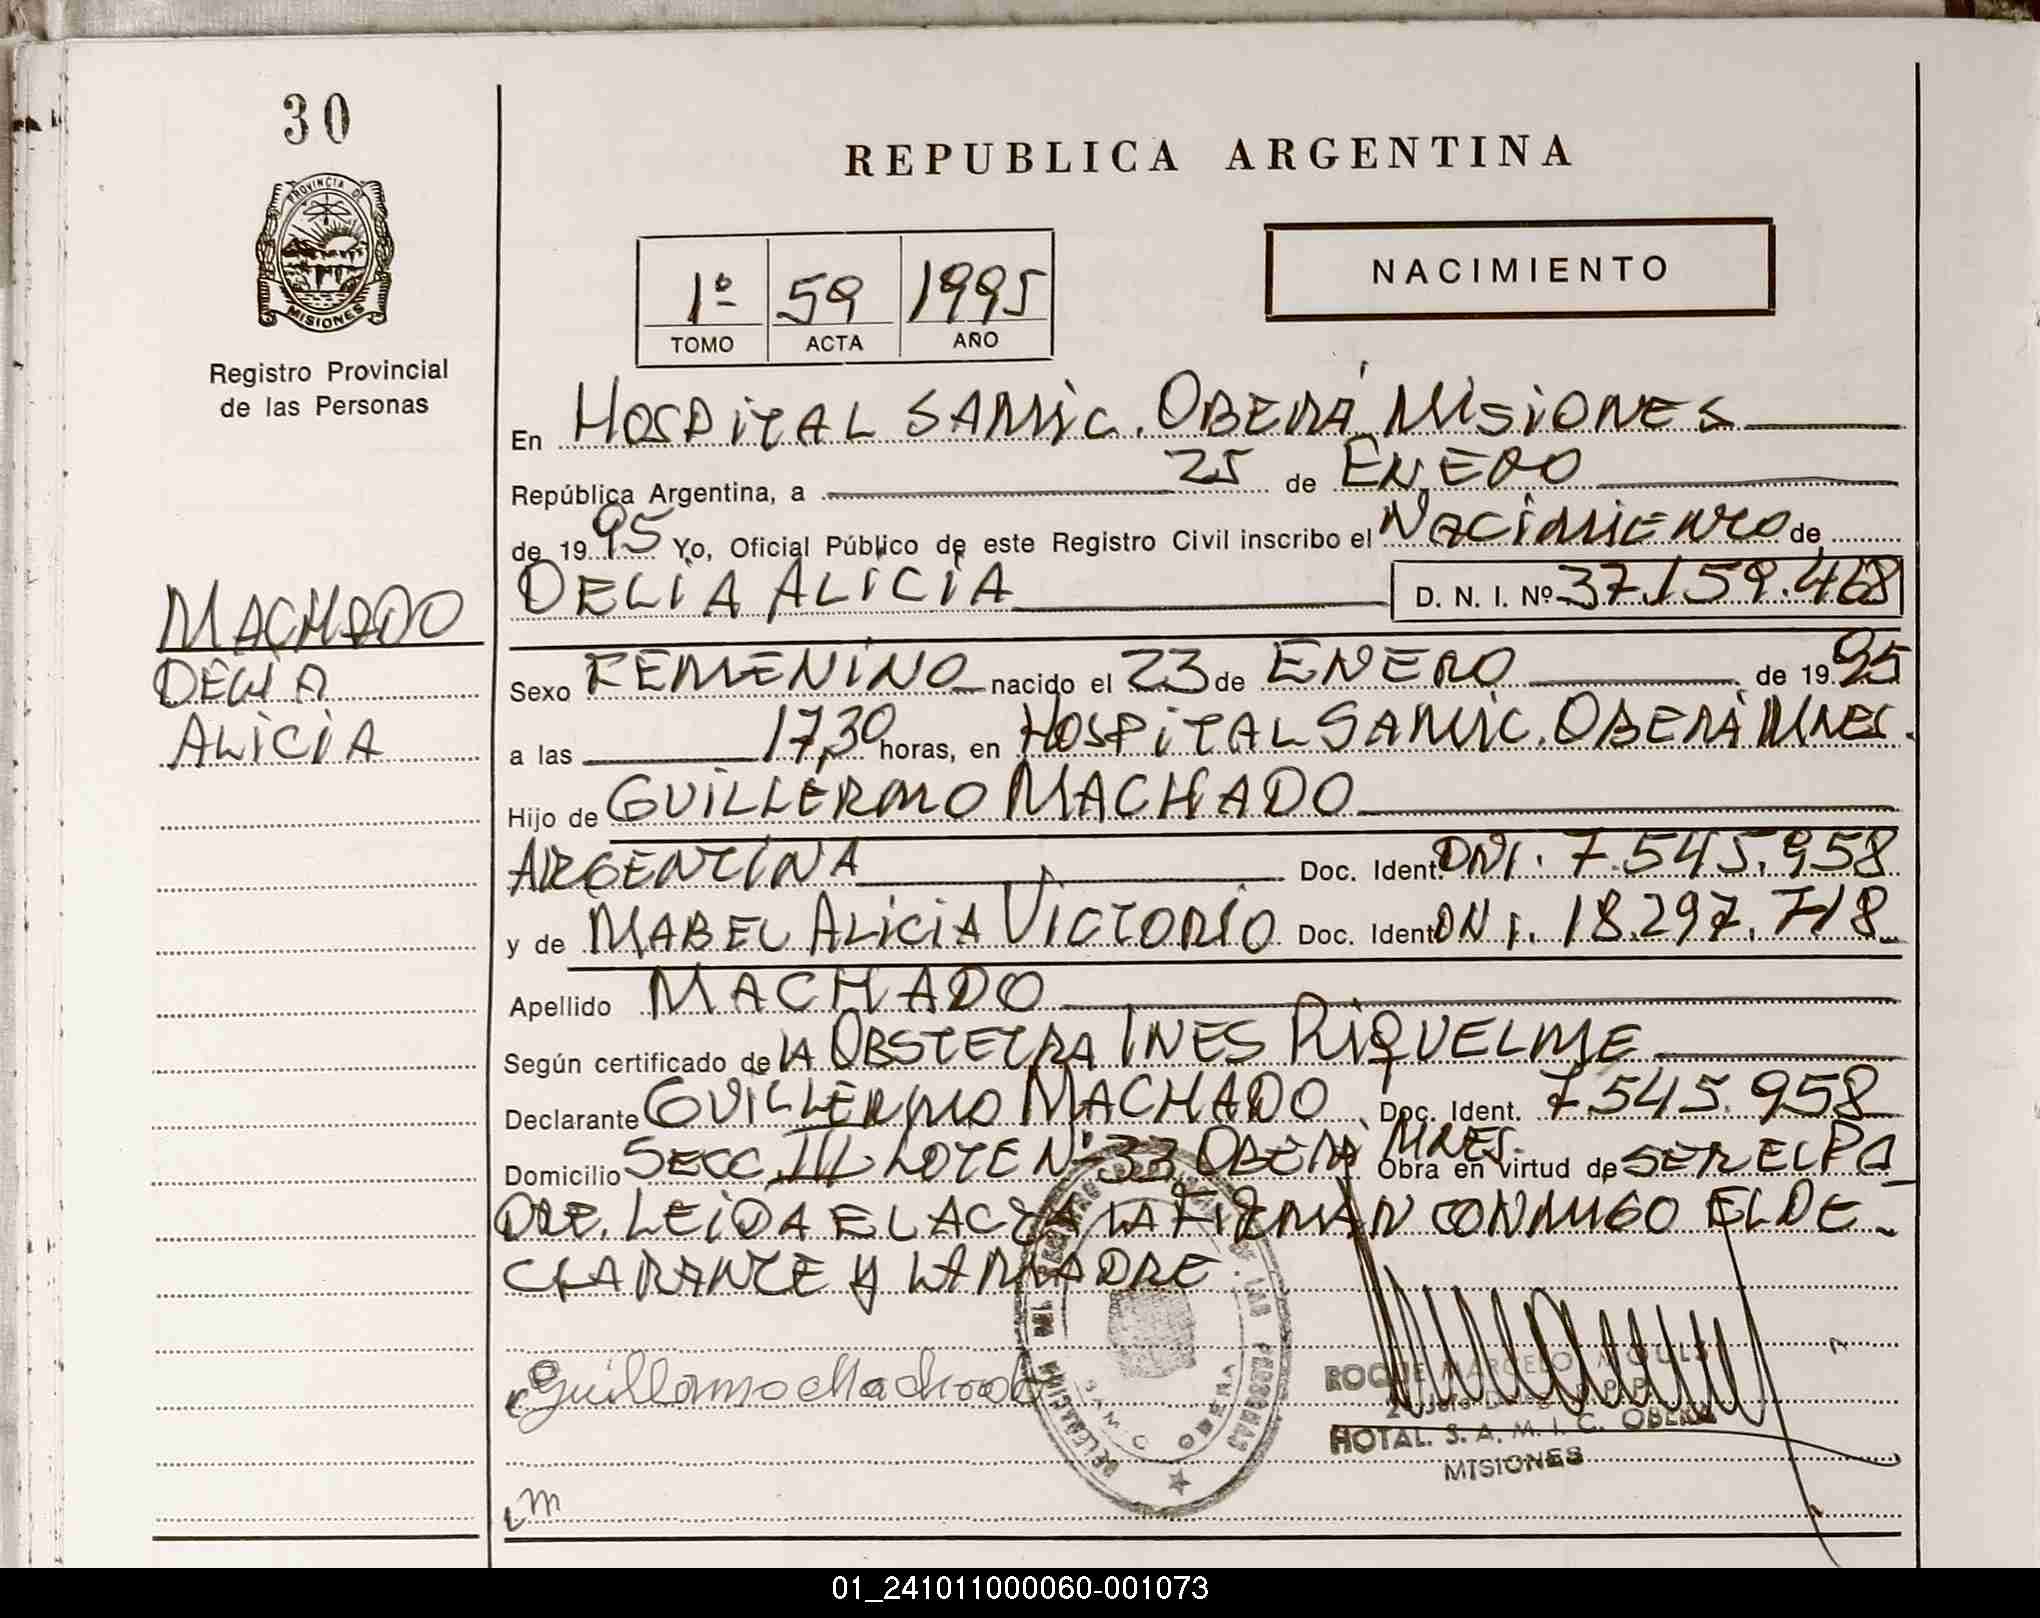 30
PROVINCIA DE
MISIONES
Registro Provincial
de las Personas
MACHADO
DELIA
ALICIA
REPUBLICA ARGENTINA
1º 59 1995
TOMO ACTA AÑO
NACIMIENTO
En HOSPITAL SAMIC. OBERÁ MISIONES
República Argentina, a 25 de ENERO
de 1995 Yo, Oficial Público de este Registro Civil inscribo el NACIMIENTO de
DELIA ALICIA D. N. I. Nº 37.159.468
Sexo FEMENINO nacido el 23 de ENERO de 1995
a las 17,30 horas, en HOSPITAL SAMIC. OBERÁ MNES.
Hijo de GUILLERMO MACHADO
ARGENTINA Doc. Ident. DNI. 7.545.958
y de MABEL ALICIA VICTORIO Doc. Ident DNI. 18.297.718
Apellido MACHADO
Según certificado de LA OBSTETRA INES RIQUELME
Declarante GUILLERMO MACHADO Doc. Ident. 7.545.958
Domicilio SECC. III LOTE Nº 33 OBERÁ MNES. Obra en virtud de SER EL PA
DRE. LEIDA EL ACTA LA FIRMAN CONMIGO EL DE-
CLARANTE Y LA MADRE.
Guillermo Machado
ROQUE MARCELO
HOTAL. S. A. M. I. C. OBERA
MISIONES
DELEGACION
LAS PERSONAS
SAMIC OBERA
m
01_241011000060-001073